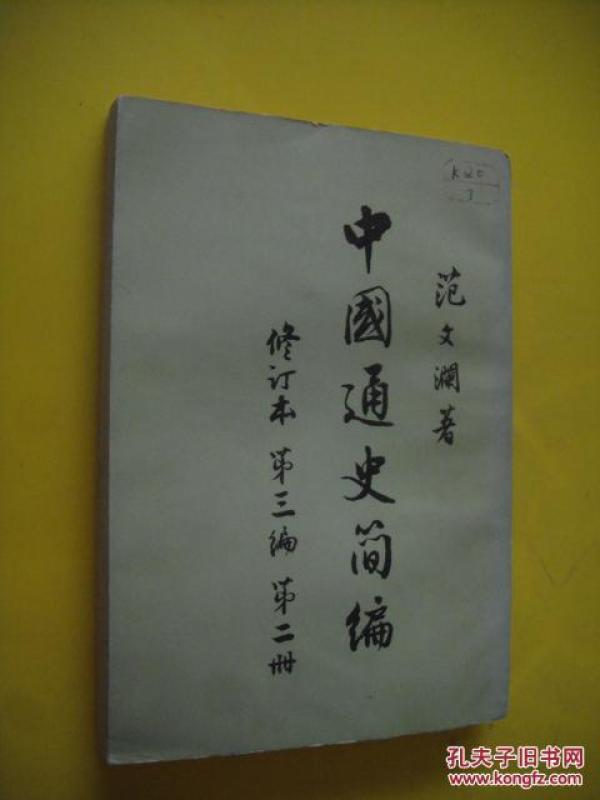 范文瀾著
中國通史简编
修订本 第三编 第二册
K20
孔夫子旧书网
www.kongfz.com